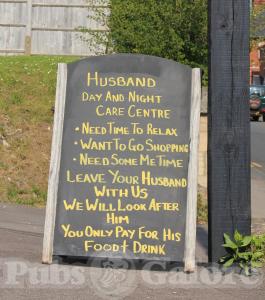 HUSBAND
DAY AND NIGHT
CARE CENTRE
• NEED TIME TO RELAX
• WANT TO GO SHOPPING
• NEED SOME ME TIME
LEAVE YOUR HUSBAND
WITH US
WE WILL LOOK AFTER
HIM
YOU ONLY PAY FOR HIS
FOOD + DRINK
Pubs Galore